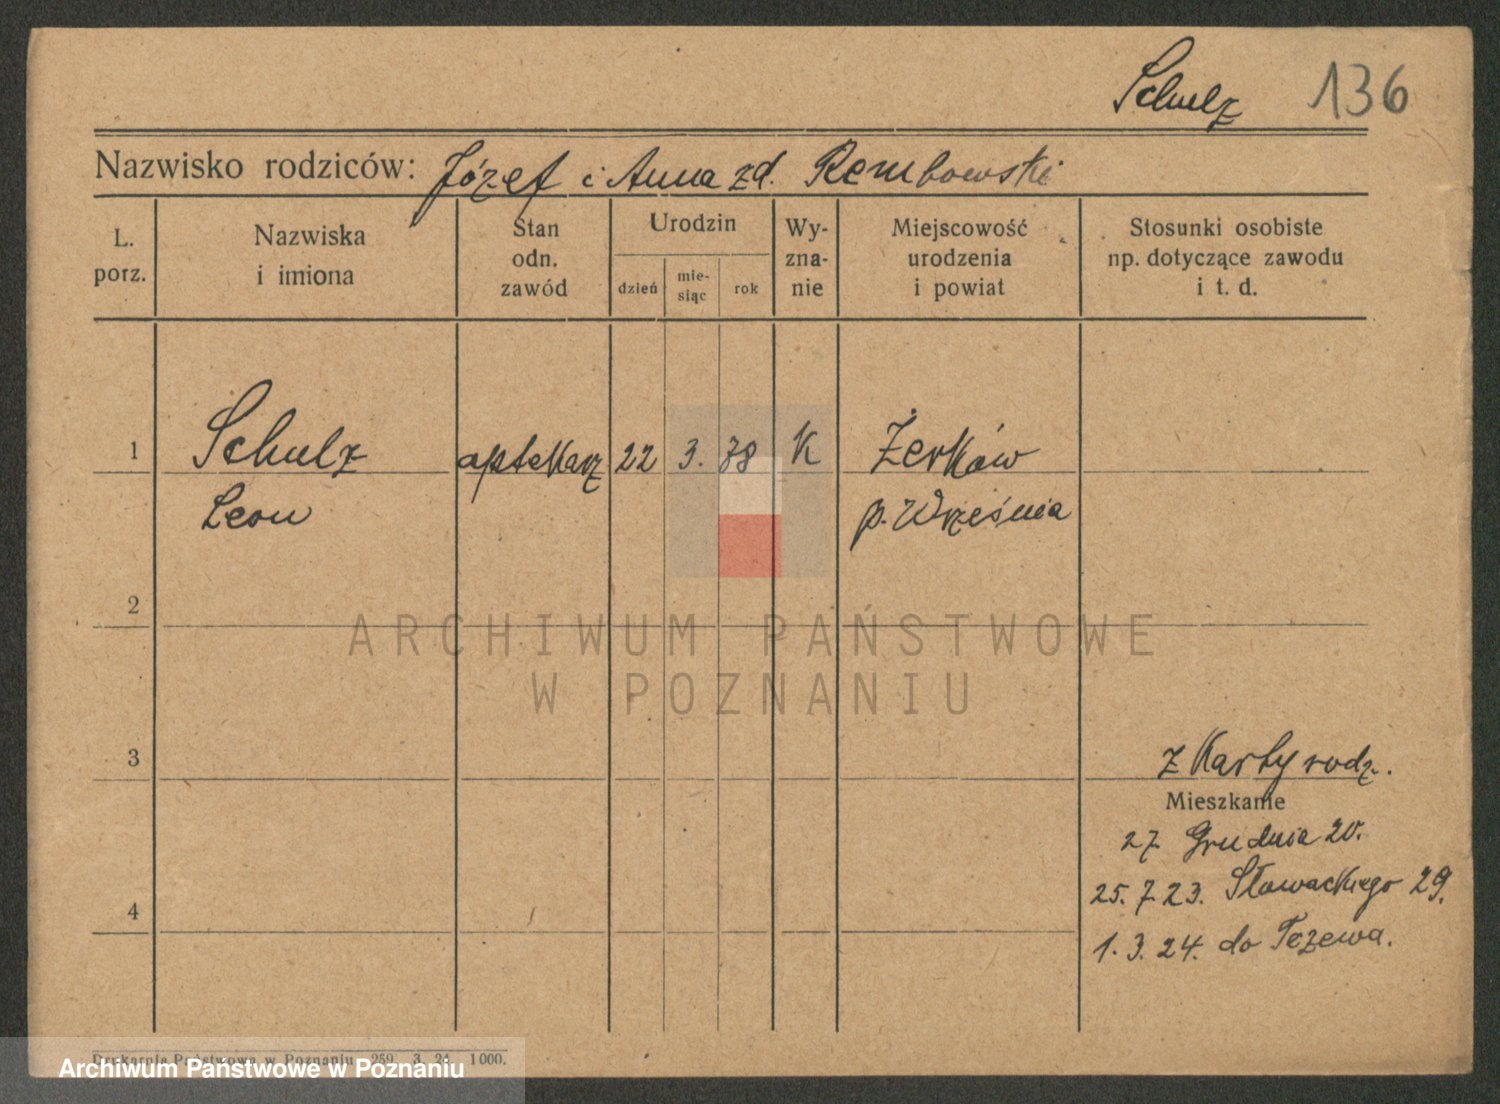 Schulz 136
Nazwisko rodziców: Józef i Anna zd. Rembowski
L. porz.
Nazwiska i imiona
Stan odn. zawód
Urodzin
dzień
mie-siąc
rok
Wy-zna-nie
Miejscowość urodzenia i powiat
Stosunki osobiste np. dotyczące zawodu i t. d.
1 Schulz aptekarz 22 3. 78 K Żerków
Leon p. Września
2
3
z Karty rodz.
Mieszkanie
27 Grudnia 20.
25. 7. 23. Słowackiego 29.
4
1. 3. 24. do Tczewa.
ARCHIWUM PAŃSTWOWE
W POZNANIU
Drukarnia Państwowa w Poznaniu 259. 3. 24. 1000.
Archiwum Państwowe w Poznaniu